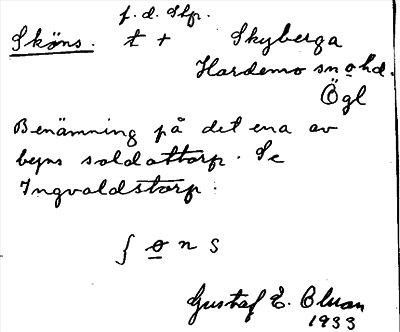 f. d. Stp.
Sköns. t + Skyberga
Hardemo sn o hd.
Ögl
Benämning på det ena av
byns soldattorp. Se
Ingvaldstorp.
ʃ o n s
Gustaf E. Olson
1933